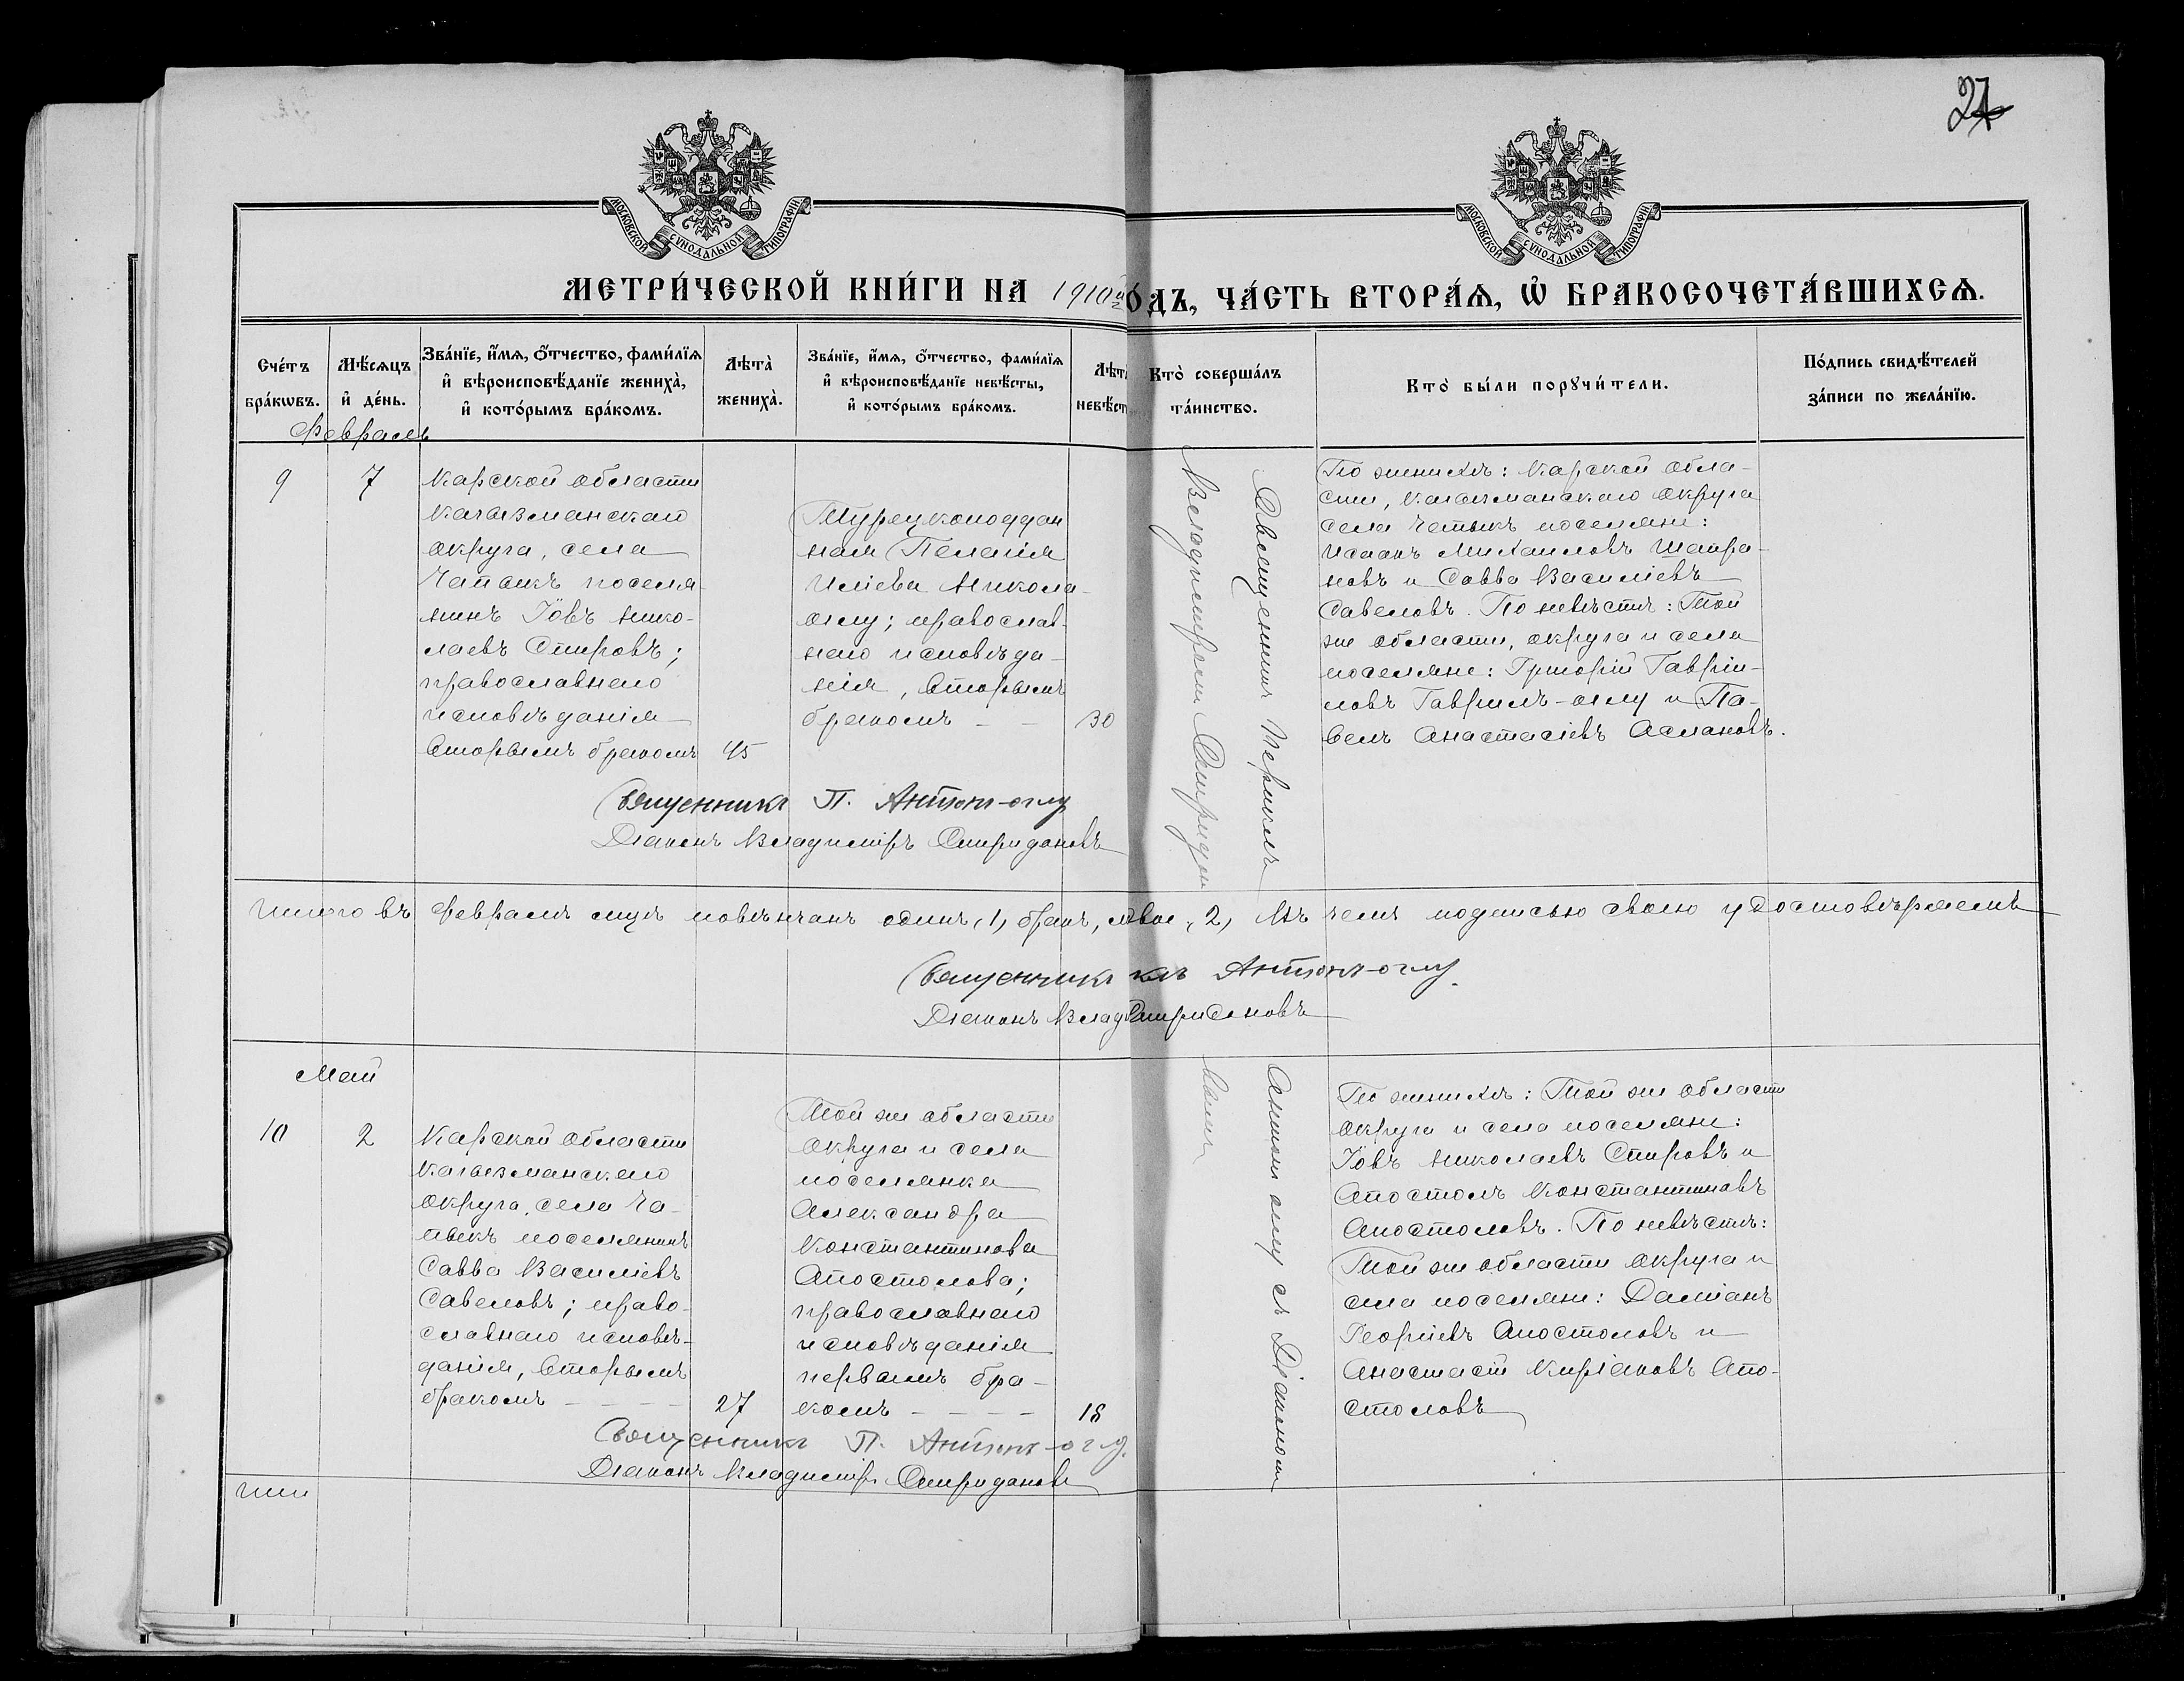 27
МОСКОВСКОЙ СѴНОДАЛЬНОЙ ТИПОГРАФІИ
МОСКОВСКОЙ СѴНОДАЛЬНОЙ ТИПОГРАФІИ
МЕТРИ́ЧЕСКОЙ КНИ́ГИ НА 1910й
О́ДЪ, ЧА́СТЬ ВТОРА́Ѧ, Ѡ҆ БРАКОСОЧЕТА́ВШИХСѦ.
Сче́тъ
бра́кѡвъ.
Мѣ́сѧцъ
и҆ де́нь.
Зва́нїе, и҆́мѧ, ѻ҆́тчество, фами́лїѧ
и҆ вѣроисповѣ́данїе жениха̀,
и҆ кото́рымъ бра́комъ.
Лѣта̀
жениха̀.
Зва́нїе, и҆́мѧ, ѻ҆́тчество, фами́лїѧ
и҆ вѣроисповѣ́данїе невѣ́сты,
и҆ кото́рымъ бра́комъ.
Лѣт
невѣ́ст
Кто̀ соверша́лъ
та́инство.
Кто̀ бы́ли порꙋчи́тели.
По́дпись свидѣ́телей
за́писи по жела́нїю.
Февраль
9
7
Карской области
Кагызманскаго
округа, села
Чапыкъ поселя-
нинъ Іовъ Нико-
лаевъ Спировъ;
православнаго
исповѣданія
вторымъ бракомъ
45
Турецкоподдан
ная Пелагія
Иліева Никола-
оглу; православ-
наго исповѣда-
нія, вторымъ
бракомъ – –
30
Священникъ Периклъ
Владимиромъ Спиридон
По женихѣ: Карской обла-
сти, Кагызманскаго округа
села Чапыкъ поселяне:
Исаакъ Михаиловъ Шапра-
новъ и Савва Василіевъ
Савеловъ. По невѣстѣ: Той
же области, округа и села
поселяне: Григорій Гавріи-
ловъ Гавриилъ-оглу и Па-
велъ Анастасіевъ Аслановъ.
Священникъ П. Антонъ-оглу
Діаконъ Владиміръ Спиридоновъ
Итого въ февралѣ мцѣ повѣнчанъ одинъ (1) бракъ, двое (2) въ чемъ подписью своею удостовѣряемъ
Священникъ Антонъ-оглу.
Діаконъ Влад Спиридоновъ
Май
10
2
Карской области
Кагызманскаго
округа, села Ча-
пыкъ поселянинъ
Савва Василіевъ
Савеловъ; право-
славнаго исповѣ-
данія, вторымъ
бракомъ – – – –
27
Той же области
округа и села
поселянка
Александра
Константинова
Апостолова;
православнаго
исповѣданія
первымъ бра-
комъ – – – –
18
Антонъ оглу съ Діакономъ
По женихѣ: Той же области
округа и села поселяне:
Іовъ Николаевъ Спировъ и
Апостолъ Константиновъ
Апостоловъ. По невѣстѣ:
Той же области округа и
села поселяне: Даміанъ
Георгіевъ Апостоловъ и
Анастасій Киріаковъ Апо-
столовъ
Священникъ П. Антонъ-оглу.
Діаконъ Владиміръ Спиридоновъ